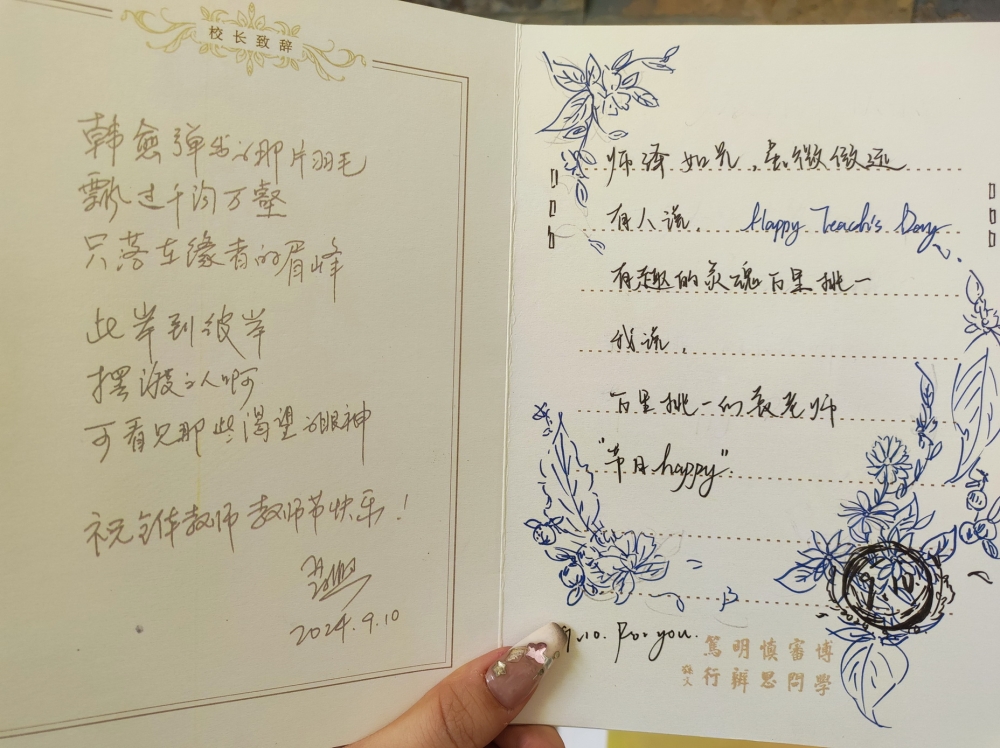 校长致辞
韩愈弹出的那片羽毛
飘过千沟万壑
只落在缘者的眉峰
此岸到彼岸
摆渡之人啊
可看见那些渴望的眼神
祝全体教师教师节快乐！
2024.9.10
师泽如光，虽微致远
有人说， Happy Teach's Day
有趣的灵魂百里挑一
我说，
百里挑一的教老师
"节日happy"
9.10
9.10. For you.
篤明慎審博
行辨思問學